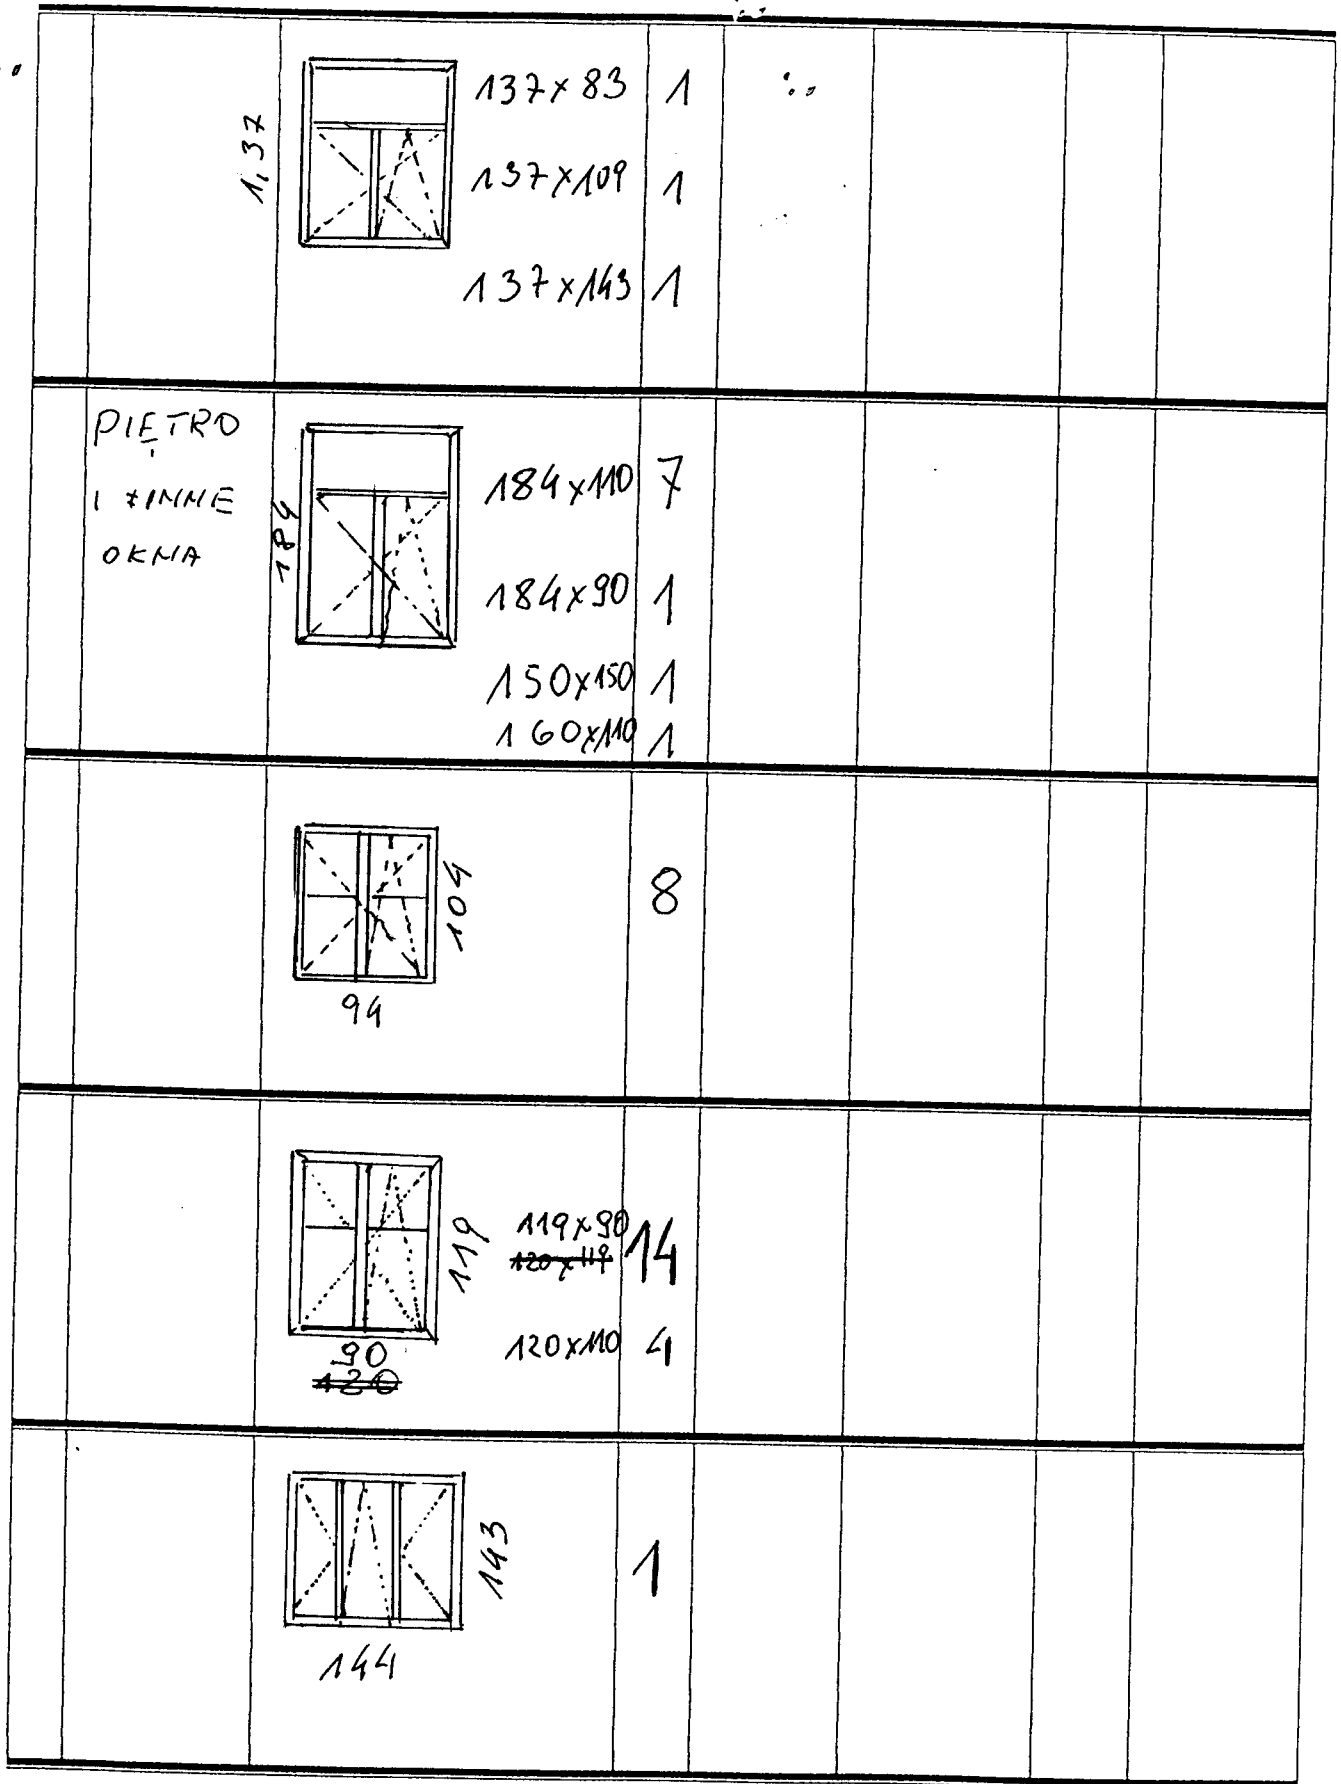 1,37
137x83 1
137x109 1
137x143 1
PIĘTRO
I INNE
OKNA
184
184x110 7
184x90 1
150x150 1
160x110 1
104
8
94
119
119x90 14
120x119
120x110 4
90
120
143
1
144